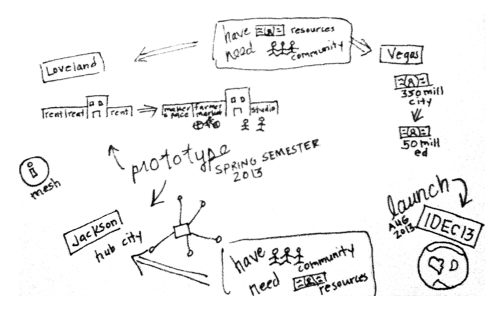 have resources
need community
Loveland
Vegas
rent rent rent
maker space farmer market studio
350 mill
city
50 mill
ed
prototype
SPRING SEMESTER
2013
i
mesh
Jackson
hub city
launch
AUG
2013
1DEC13
have community
need resources
D